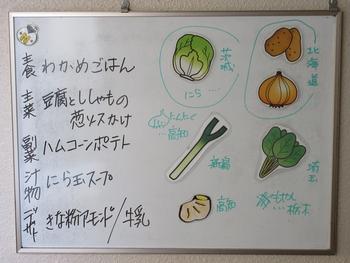 主食 わかめごはん
主菜 豆腐とししゃもの
葱ソースかけ
副菜 ハムコーンポテト
汁物 にら玉スープ
デザート きな粉アーモンド/牛乳
茨城
にら
北海道
にんにく
高知
新潟
高知
埼玉
栃木